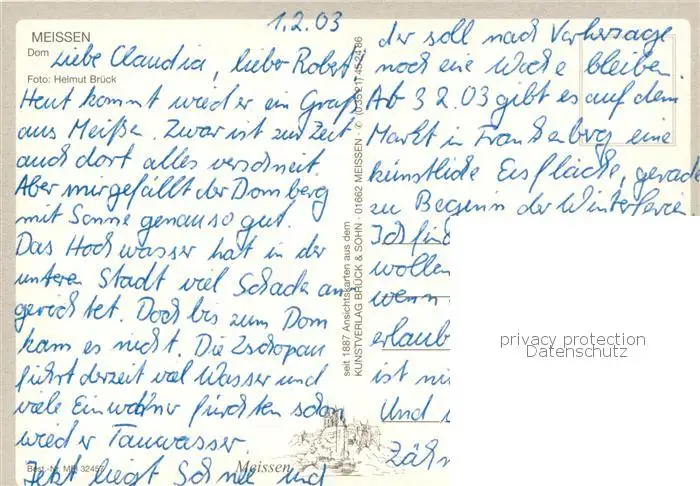 1.2.03
MEISSEN
Dom
Foto: Helmut Brück
Liebe Claudia, lieber Robert,
Heut kommt wieder ein Gruß
aus Meißen. Zwar ist zur Zeit
auch dort alles verschneit.
Aber mir gefällt der Domberg
mit Sonne genauso gut.
Das Hochwasser hat in der
unteren Stadt viel Schaden an-
gerichtet. Doch bis zum Dom
kam es nicht. Die Zschopau
führt derzeit viel Wasser und
viele Einwohner fürchten schon
wieder Tauwasser.
Jetzt liegt Schnee und
Best.-Nr. MEI 32457
Meissen
seit 1887 Ansichtskarten aus dem
KUNSTVERLAG BRÜCK & SOHN · 01662 MEISSEN · ✆ (03521) 45 24 86
der soll nach Vorhersage
noch eine Woche bleiben.
Ab 3.2.03 gibt es auf dem
Markt in Frankenberg eine
künstliche Eisfläche, gerade
zu Beginn der Winterferien
Ich
wollen
wenn
erlaub
ist
Und
Zähn
privacy protection
Datenschutz